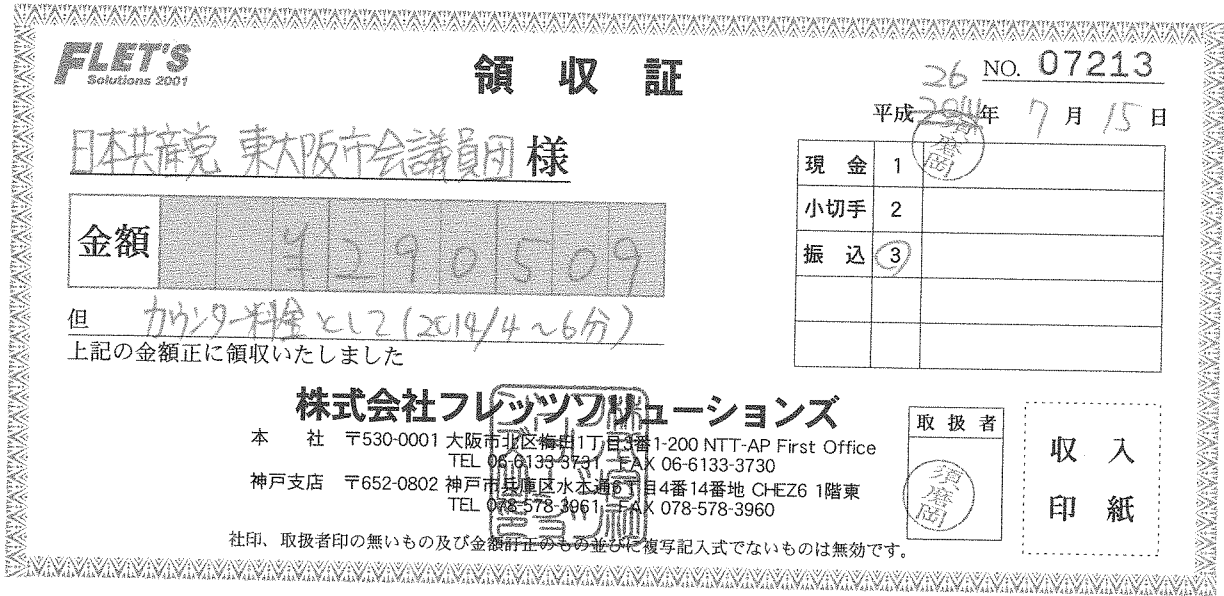 FLET'S
Solutions 2001
領収証
NO. 07213
26
平成 2014年 7月 15日
日本共産党 東大阪市会議員団 様
金額 ¥290509
現金 1
小切手 2
振込 3
但 カウンター料金として(2014/4〜6分)
上記の金額正に領収いたしました
株式会社フレッツソリューションズ
本社 〒530-0001 大阪市北区梅田1丁目3番1-200 NTT-AP First Office
TEL 06-6133-3731 FAX 06-6133-3730
神戸支店 〒652-0802 神戸市兵庫区水木通5丁目4番14番地 CHEZ6 1階東
TEL 078-578-3961 FAX 078-578-3960
取扱者
須磨岡
収入
印紙
社印、取扱者印の無いもの及び金額訂正のもの並びに複写記入式でないものは無効です。